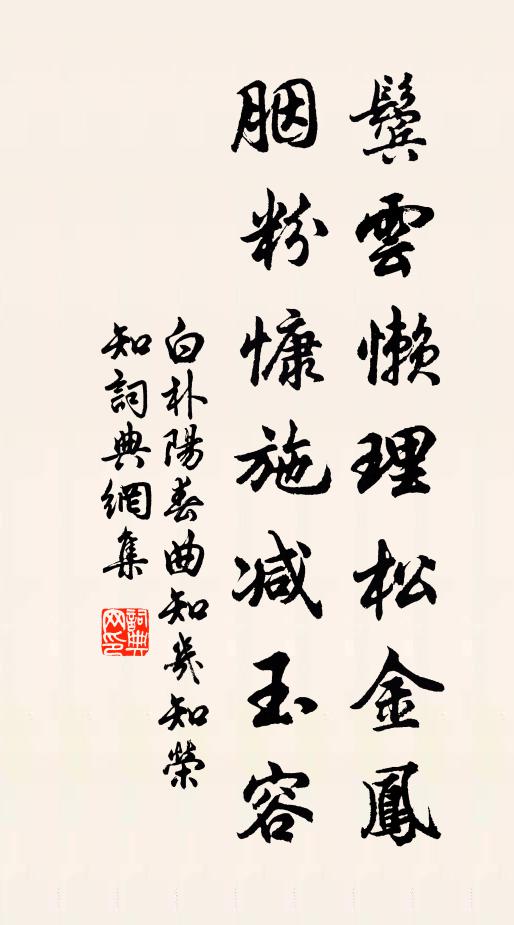 鬓雲懶理松金鳳
胭粉慷施减玉容
白朴陽春曲知幾知榮
知詞典網集
詞典网印